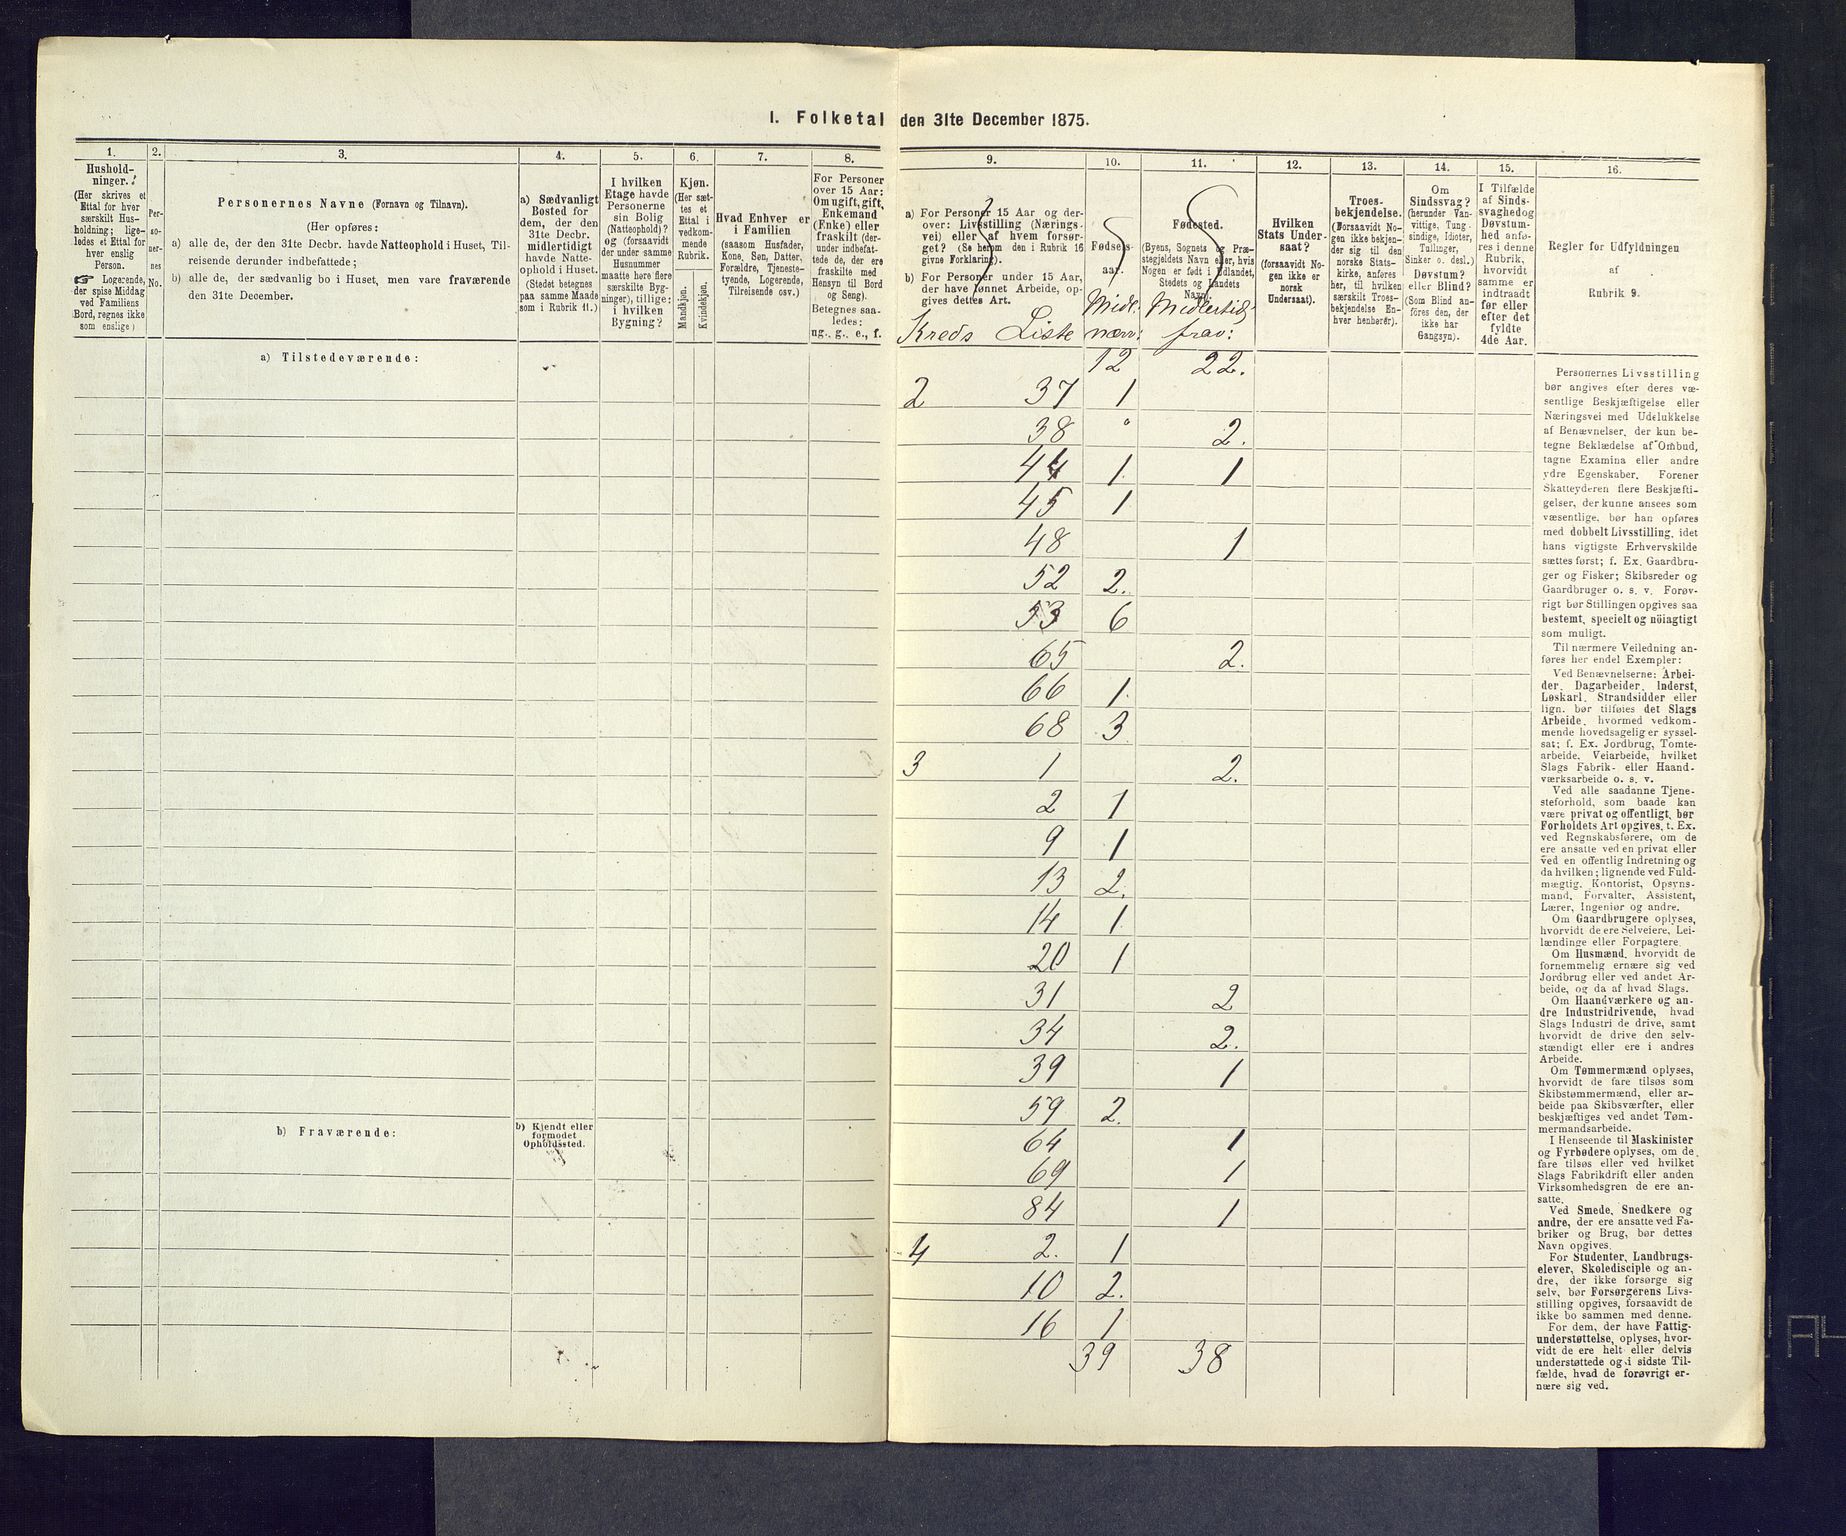 I. Folketal den 31te December 1875.
1.
Hushold-
ninger.
(Her skrives et
Ettal for hver
særskilt Hus-
holdning; lige-
ledes et Ettal for
hver enslig
Person.
☞ Logerende,
der spise Middag
ved Familiens
Bord, regnes ikke
som enslige)
2.
Per-
so-
ner-
nes
No.
3.
Personernes Navne (Fornavn og Tilnavn).
(Her opføres:
a) alle de, der den 31te Decbr. havde Natteophold i Huset, Til-
reisende derunder indbefattede;
b) alle de, der sædvanlig bo i Huset, men vare fraværende
den 31te December.
4.
a) Sædvanligt
Bosted for
dem, der den
31te Decbr.
midlertidigt
havde Natte-
ophold i Huset.
(Stedet betegnes
paa samme Maade
som i Rubrik 11.)
5.
I hvilken
Etage havde
Personerne
sin Bolig
(Natteophold)?
og (forsaavidt
der under samme
Husnummer
maatte høre flere
særskilte Byg-
ninger), tillige:
i hvilken
Bygning?
6.
Kjøn.
(Her sæt-
tes et
Ettal i
vedkom-
mende
Rubrik.
Mandkjøn.
Kvindekjøn.
7.
Hvad Enhver er
i Familien
(saasom Husfader,
Kone, Søn, Datter,
Forældre, Tjeneste-
tyende, Logerende,
Tilreisende osv.)
8.
For Personer
over 15 Aar:
Om ugift, gift,
Enkemand
(Enke) eller
fraskilt (der-
under indbefat-
tede de, der ere
fraskilte med
Hensyn til Bord
og Seng).
Betegnes saa-
ledes:
ug., g., e., f.
a) Tilstedeværende:
b) Fraværende:
b) Kjendt eller
formodet
Opholdssted.
9.
a) For Personer 15 Aar og der-
over: Livsstilling (Nærings-
vei) eller af hvem forsør-
get? (Se herom den i Rubrik 16
givne Forklaring).
b) For Personer under 15 Aar,
der have lønnet Arbeide, op-
gives dettes Art.
Kreds Liste
10.
Fødsels-
aar.
Midl.
nærv:
11.
Fødested.
(Byens, Sognets og Præ-
stegjeldets Navn eller, hvis
Nogen er født i Udlandet,
Stedets og Landets
Navn).
Midlertid.
frav:
12.
Hvilken
Stats Under-
saat?
(forsaavidt No-
gen ikke er
norsk
Undersaat).
13.
Troes-
bekjendelse.
(Forsaavidt No-
gen ikke bekjen-
der sig til den
norske Stats-
kirke, anføres
her, til hvilken
særskilt Troes-
bekjendelse En-
hver henhører).
14.
Om
Sindssvag?
(herunder Van-
vittige, Tung-
sindige, Idioter,
Tullinger,
Sinker o. desl.)
Døvstum?
eller Blind?
(Som Blind an-
føres den, der
ikke har
Gangsyn).
15.
I Tilfælde
af Sinds-
svaghed og
Døvstum-
hed anfø-
res i denne
Rubrik,
hvorvidt
samme er
indtraadt
før eller
efter det
fyldte
4de Aar.
16.
Regler for Udfyldningen
af
Rubrik 9.
12 22.
2 37 1
38 " 2.
44 1. 1
45 1
48 1
52 2.
53 6
65 2.
66 1.
68 3
3 1 2.
2 1
9 1
13 2.
14 1
20 1
31 2
34 2.
39 1
59 2.
64 1
69 1
84 1
4 2. 1
10 2.
16 1
39 38
Personernes Livsstilling
bør angives efter deres væ-
sentlige Beskjæftigelse eller
Næringsvei med Udelukkelse
af Benævnelser, der kun be-
tegne Beklædelse af Ombud,
tagne Examina eller andre
ydre Egenskaber. Forener
Skatteyderen flere Beskjæfti-
gelser, der kunne ansees som
væsentlige, bør han opføres
med dobbelt Livsstilling, idet
hans vigtigste Erhvervskilde
sættes først; f. Ex. Gaardbru-
ger og Fisker; Skibsreder og
Gaardbruger o. s. v. Forøv-
rigt bør Stillingen opgives saa
bestemt, specielt og nöiagtigt
som muligt.
Til nærmere Veiledning an-
føres her endel Exempler:
Ved Benævnelserne: Arbei-
der, Dagarbeider, Inderst,
Løskarl, Strandsidder eller
lign. bør tilføies det Slags
Arbeide, hvormed vedkom-
mende hovedsagelig er syssel-
sat; f. Ex. Jordbrug, Tomte-
arbeide, Veiarbeide, hvilket
Slags Fabrik- eller Haand-
værksarbeide o. s. v.
Ved alle saadanne Tjene-
steforhold, som baade kan
være privat og offentligt, bør
Forholdets Art opgives, t. Ex.
ved Regnskabsførere, om de
ere ansatte ved en privat eller
ved en offentlig Indretning og
da hvilken; lignende ved Fuld-
mægtig, Kontorist, Opsyns-
mand, Forvalter, Assistent,
Lærer, Ingeniør og andre.
Om Gaardbrugere oplyses,
hvorvidt de ere Selveiere, Lei-
lændinge eller Forpagtere.
Om Husmænd, hvorvidt de
fornemmelig ernære sig ved
Jordbrug eller ved andet Ar-
beide, og da af hvad Slags.
Om Haandværkere og an-
dre Industridrivende, hvad
Slags Industri de drive, samt
hvorvidt de drive den selv-
stændigt eller ere i andres
Arbeide.
Om Tømmermænd oplyses,
hvorvidt de fare tilsøs som
Skibstømmermænd, eller ar-
beide paa Skibsværfter, eller
beskjæftiges ved andet Tøm-
mermandsarbeide.
I Henseende til Maskinister
og Fyrbødere oplyses, om de
fare tilsøs eller ved hvilket
Slags Fabrikdrift eller anden
Virksomhedsgren de ere an-
satte.
Ved Smede, Snedkere og
andre, der ere ansatte ved Fa-
briker og Brug, bør dettes
Navn opgives.
For Studenter, Landbrugs-
elever, Skoledisciple og an-
dre, der ikke forsørge sig
selv, bør Forsørgerens Livs-
stilling opgives, forsaavidt de
ikke bo sammen med denne.
For dem, der have Fattig-
understøttelse, oplyses, hvor-
vidt de ere helt eller delvis
understøttede og i sidste Til-
fælde, hvad de forøvrigt er-
nære sig ved.